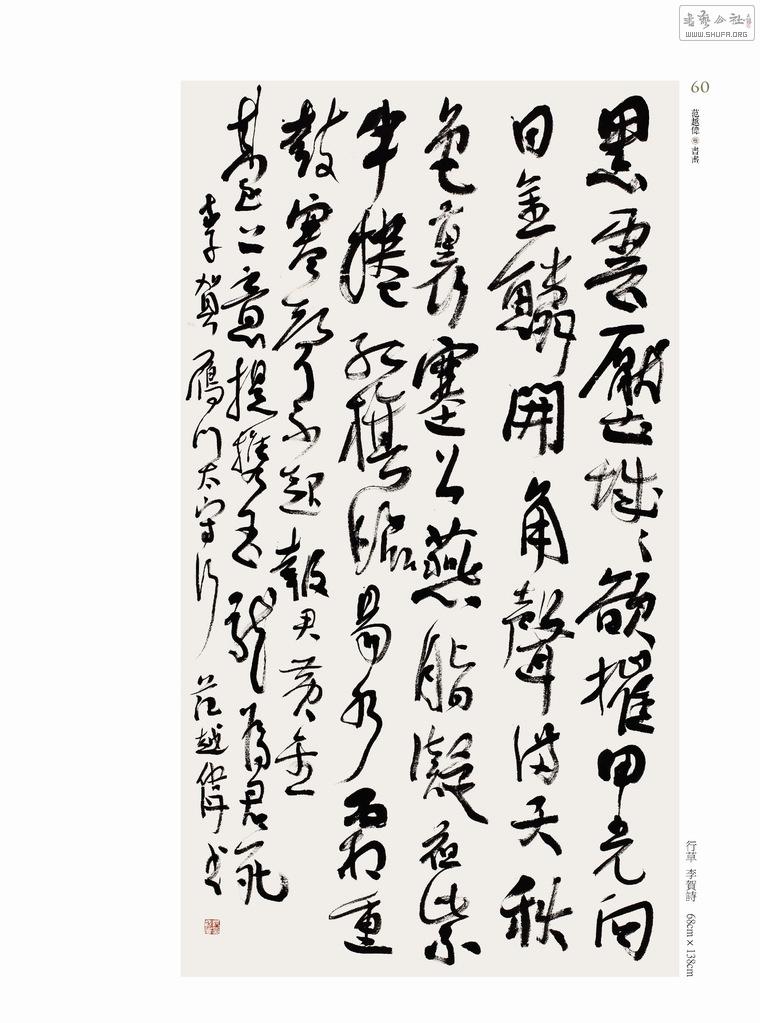 書藝公社
WWW.SHUFA.ORG
60
范越偉 書畫
黑雲壓城〻欲摧甲光向
日金鱗開角聲滿天秋
色裏塞上燕脂凝夜紫
半捲紅旗臨易水霜重
鼓寒聲不起報君黃金
臺上意提攜玉龍為君死
李賀雁門太守行 范越偉書
行草 李賀詩 68cm×138cm